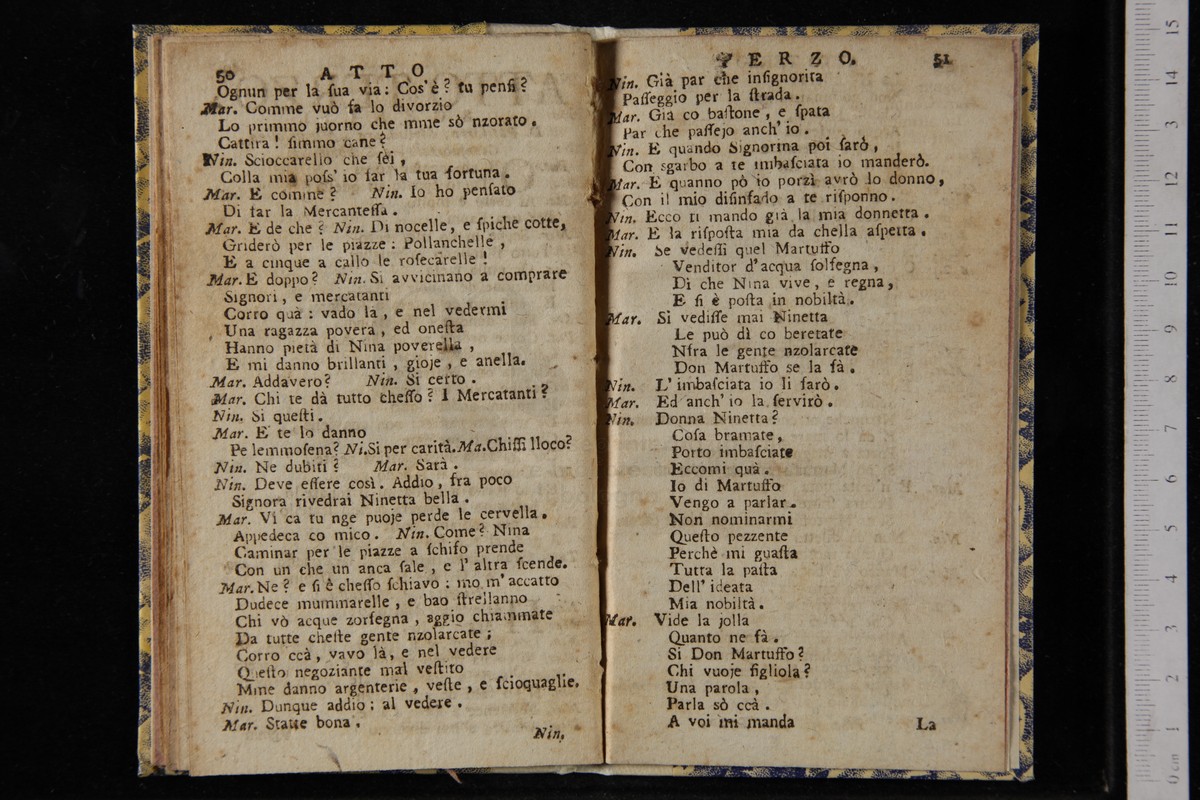 50 ATTO
Ognun per la ſua via: Cos'è? tu penſi?
Mar. Comme vuò fa lo divorzio
Lo primmo juorno che mme sò nzorato.
Cattira! ſimmo cane?
Nin. Scioccarello che ſèi,
Colla mia poſs' io far la tua fortuna.
Mar. E comme? Nin. Io ho penſato
Di far la Mercanteſſa.
Mar. E de che? Nin. Di nocelle, e ſpiche cotte,
Griderò per le piazze: Pollanchelle,
E a cinque a callo le roſecarelle!
Mar. E doppo? Nin. Si avvicinano a comprare
Signori, e mercatanti
Corro quà: vado là, e nel vedermi
Una ragazza povera, ed oneſta
Hanno pietà di Nina poverella,
E mi danno brillanti, gioje, e anella.
Mar. Addavero? Nin. Si certo.
Mar. Chi te dà tutto cheſſo? I Mercatanti?
Nin. Si queſti.
Mar. E te lo danno
Pe lemmoſena? Ni. Si per carità. Ma. Chiſſi lloco?
Nin. Ne dubiti? Mar. Sarà.
Nin. Deve eſſere così. Addio, fra poco
Signora rivedrai Ninetta bella.
Mar. Vi ca tu nge puoje perde le cervella.
Appedeca co mico. Nin. Come? Nina
Caminar per le piazze a ſchifo prende
Con un che un anca ſale, e l' altra ſcende.
Mar. Ne? e ſi è cheſſo ſchiavo: mo m' accatto
Dudece mummarelle, e bao ſtrellanno
Chi vò acque zorfegna, aggio chiammate
Da tutte cheſte gente nzolarcate;
Corro ccà, vavo là, e nel vedere
Queſto negoziante mal veſtito
Mme danno argenterie, veſte, e ſcioquaglie.
Nin. Dunque addio: al vedere.
Mar. Statte bona.
Nin.
TERZO. 51
Nin. Già par che inſignorita
Paſſeggio per la ſtrada.
Mar. Già co baſtone, e ſpata
Par che paſſejo anch' io.
Nin. E quando Signorina poi ſarò,
Con sgarbo a te imbaſciata io manderò.
Mar. E quanno pò io porzì avrò lo donno,
Con il mio diſinfado a te riſponno.
Nin. Ecco ti mando già la mia donnetta.
Mar. E la riſpoſta mia da chella aſpetta.
Nin. Se vedeſſi quel Martuffo
Venditor d'acqua ſolfegna,
Di che Nina vive, e regna,
E ſi è poſta in nobiltà.
Mar. Si vediſſe mai Ninetta
Le può dì co beretate
Nfra le gente nzolarcate
Don Martuffo se la fà.
Nin. L' imbaſciata io li farò.
Mar. Ed anch' io la ſervirò.
Nin. Donna Ninetta?
Coſa bramate,
Porto imbaſciate
Eccomi quà.
Io di Martuffo
Vengo a parlar.
Non nominarmi
Queſto pezzente
Perchè mi guaſta
Tutta la paſta
Dell' ideata
Mia nobiltà.
Mar. Vide la jolla
Quanto ne fà.
Si Don Martuffo?
Chi vuoje figliola?
Una parola,
Parla sò ccà.
A voi mi manda
La